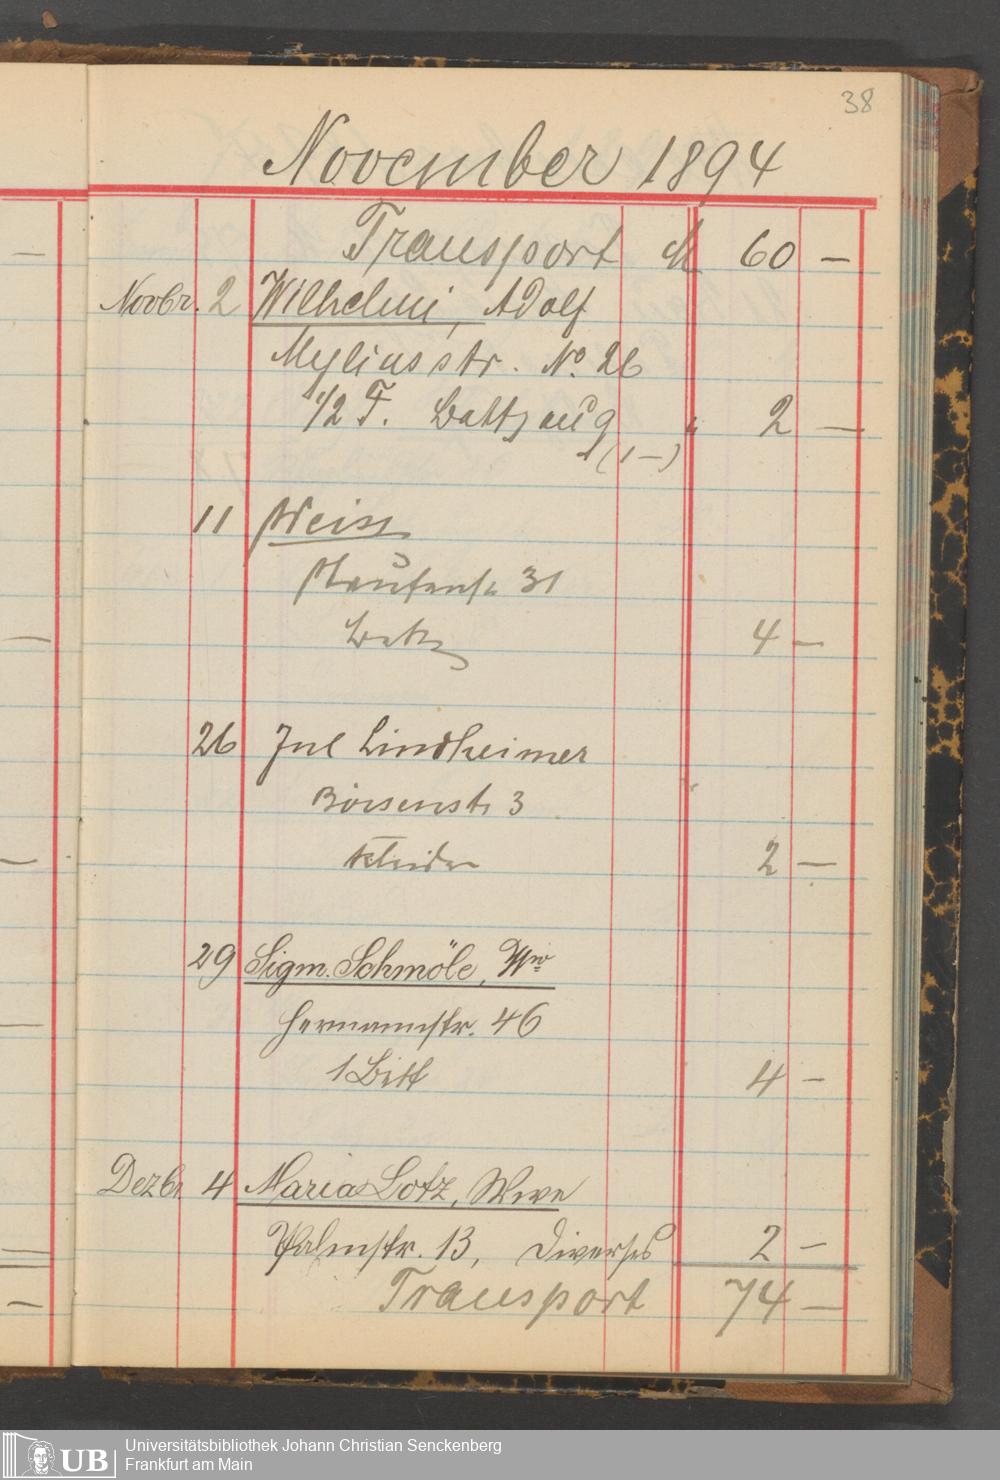 38
November 1894
Transport M 60 —
Novbr. 2 Wilhelmi, Adolf
Myliusstr. No. 26
1/2 F. Bettzeug " 2 —
(1—)
11 Weiss
Staufenstr. 31
Bett 4 —
26 Jul Lindheimer
Börsenstr 3
Kleider 2 —
29 Sigm. Schmöle, Ww
Hermannstr. 46
1 Bett 4 —
Dezbr 4 Maria Lotz, Wwe
Palmstr. 13, Diverses 2 —
Transport 74 —
UB Universitätsbibliothek Johann Christian Senckenberg
Frankfurt am Main